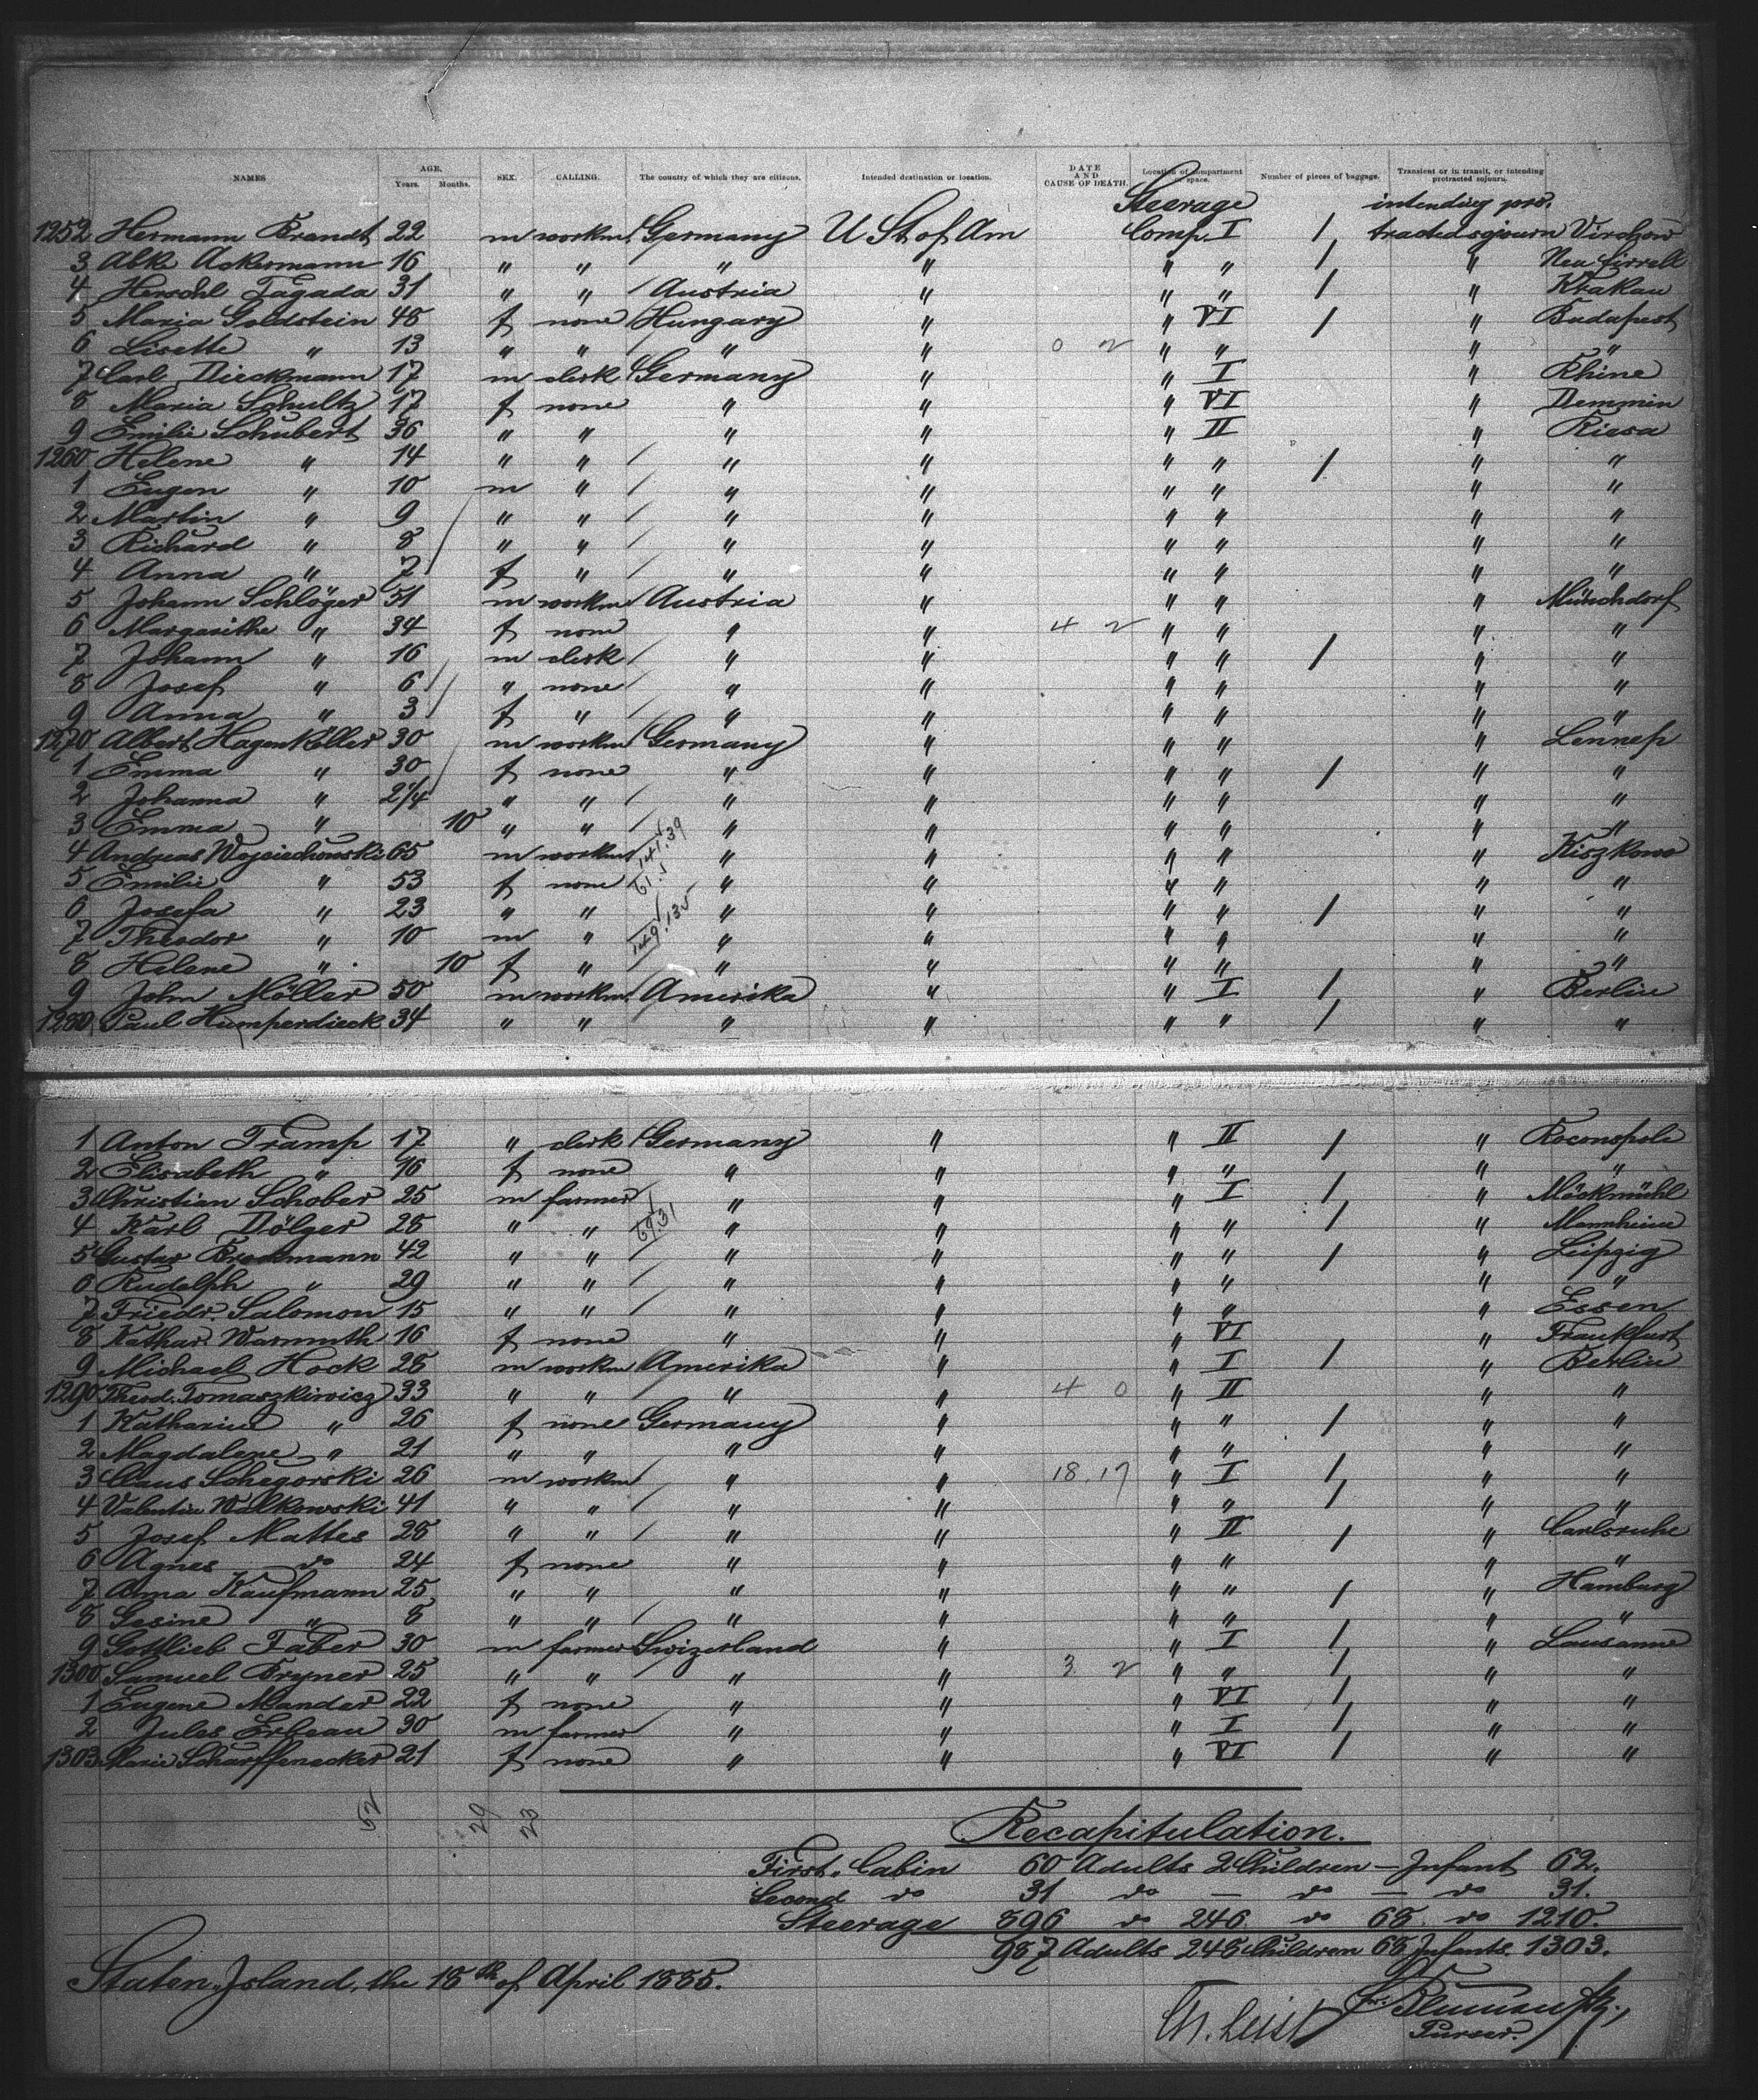 NAMES AGE. Years. Months. SEX. CALLING. The country of which they are citizens. Intended destination or location. DATE AND CAUSE OF DEATH. Location of compartment or space. Number of pieces of baggage. Transient or in transit, or intending protracted sojourn.
Steerage intending pro-
1252 Hermann Brandt 22 m workm. Germany U St of Am Comp. I / tracted sojourn Virchow
3 Abk Ackermann 16 " " " " " " / "
4 Herschl Tagada 31 " " Austria " " " / " Krakau
5 Maria Goldstein 48 f none Hungary " " VI / " Budapest
6 Lisette " 13 " " " " 0 2 " " " "
7 Carl Dieckmann 17 m clerk Germany " " I " Rhine
8 Maria Schultz 17 f none " " " VI " Demmin
9 Emilie Schubert 36 " " " " " II " Riesa
1260 Helene " 14 " " " " " " / " "
1 Eugen " 10 m " " " " " " "
2 Martin " 9 " " " " " " " "
3 Richard " 8 " " " " " " " "
4 Anna " 7 f " " " " " " "
5 Johann Schlöger 51 m workm Austria " " " " Münchdorf
6 Margarithe " 34 f none " " 4 2 " " " "
7 Johann " 16 m clerk " " " " / " "
8 Josef " 6 " none " " " " " "
9 Anna " 3 f " " " " " " "
1270 Albert Hagenkötter 30 m workm Germany " " " " Lennep
1 Emma " 30 f none " " " " / " "
2 Johanna " 2 1/4 " " " " " " " "
3 Emma " 10 " " " " " " " "
4 Andreas Wojciechowski 65 m workm " " " " " Kiszkowo
5 Emilie " 53 f none " " " " " "
6 Josefa " 23 " " " " " " / " "
7 Theodor " 10 m " " " " " " "
8 Helene " 10 f " " " " " " "
9 John Möller 50 m workm. Amerika " " I / " Berlin
1280 Paul Humperdieck 34 " " " " " " / " "
1 Anton Tramp 17 " clerk Germany " " II / "
2 Elisabeth " 16 f none " " " " " "
3 Christian Schober 25 m farmer " " " I / " Möckmühl
4 Karl Dölger 28 " " " " " " / " Mannheim
5 Gustav Brockmann 42 " " " " " " / " Leipzig
6 Rudolph " 29 " " " " " " " "
7 Friedr. Salomon 15 " " " " " " " Essen
8 Kathar. Warmuth 16 f none " " " VI " Frankfurt
9 Michael Hock 28 m workm Amerika " " I / " Berlin
1290 Theod. Tomaszkiwicz 33 " " " " 4 0 " II " "
1 Katharina " 26 f none Germany " " " / " "
2 Magdalene " 21 " " " " " " " "
3 Claus Schegorski 26 m workm " " 18.17 " I / " "
4 Valentin Walkowski 41 " " " " " " / " "
5 Josef Mattes 28 " " " " " II / " Carlsruhe
6 Agnes do 24 f none " " " " " "
7 Anna Kaufmann 25 " " " " " " / " Hamburg
8 Gesine " 8 " " " " " " " "
9 Gottlieb Faber 30 m farmer Swizerland " " I / " Lausanne
1300 Samuel Bryner 25 " " " " 3 2 " " / " "
1 Eugene Mander 22 f none " " " VI / " "
2 Jules Erbeau 30 m farmer " " " I / " "
1303 Marie Scharffenecker 21 f none " " " VI / " "
52 29 23
Recapitulation.
First. Cabin 60 Adults 2 Children — Infant 62.
Second do 31 do — do — do 31.
Steerage 896 do 246 do 68 do 1210.
987 Adults 248 Children 68 Infants 1303.
Staten Island, the 18th of April 1885.
Ch. Leist
Purser.